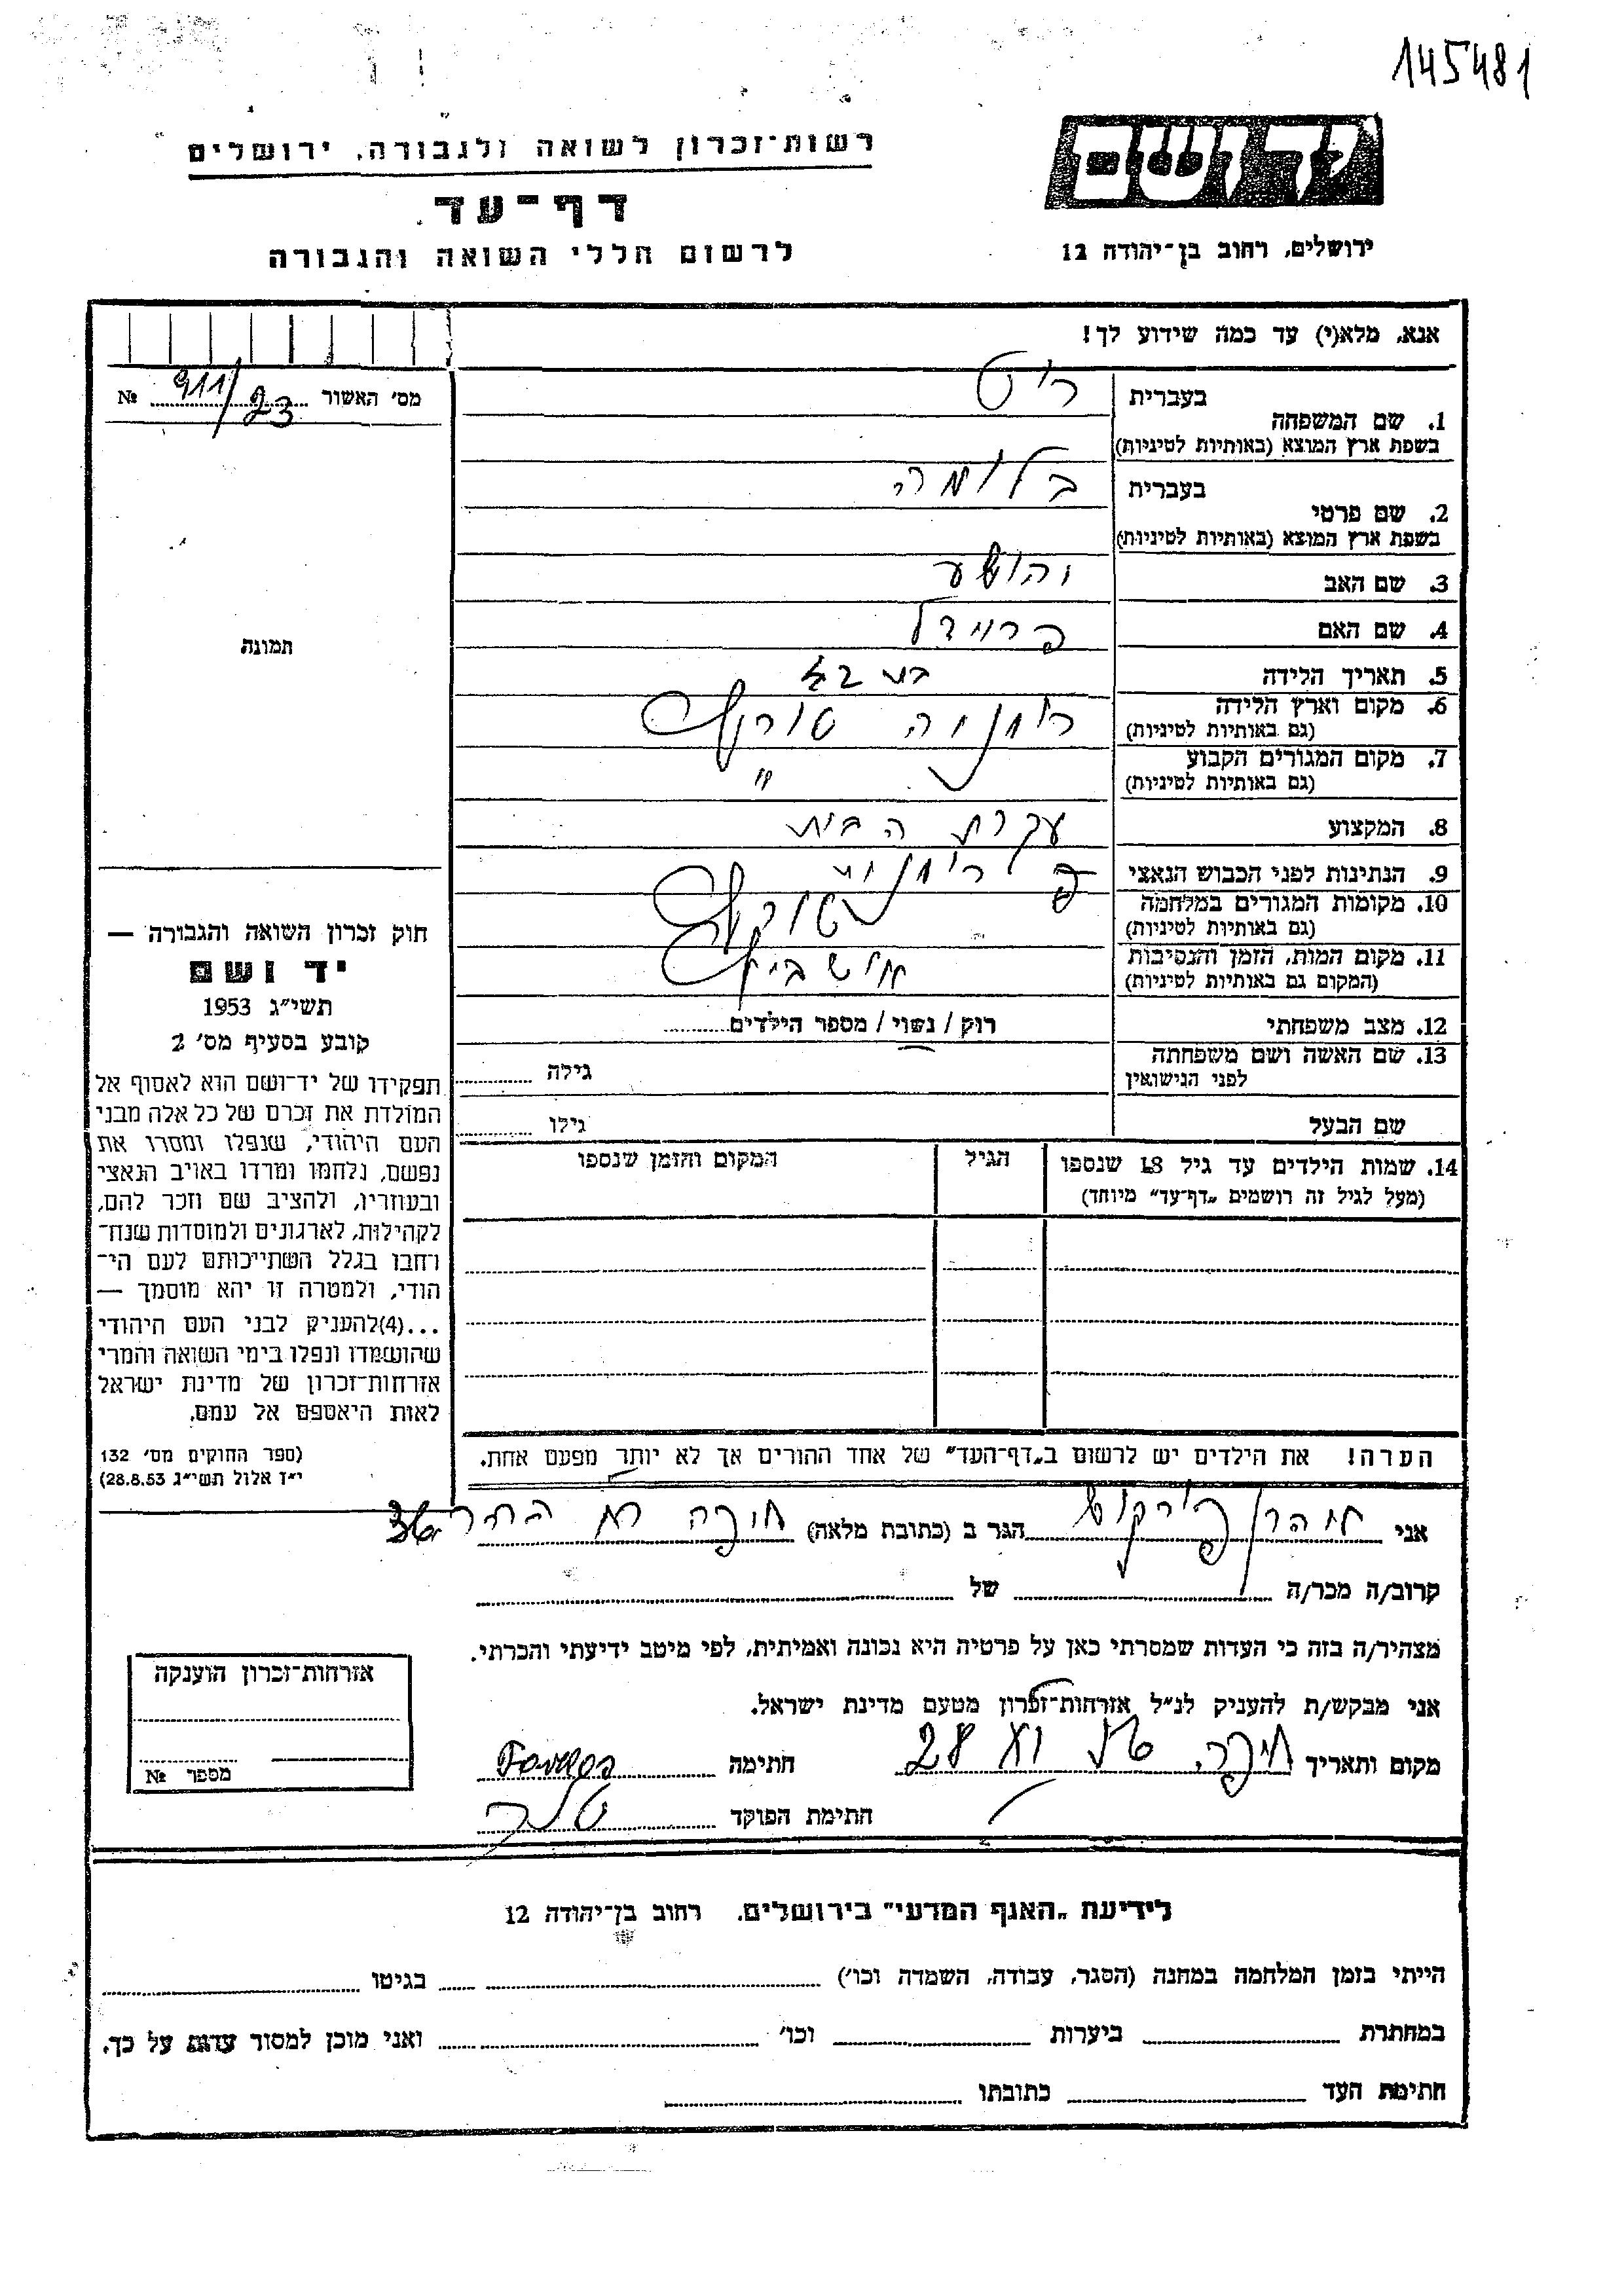 145481
יד ושם
רשות־זכרון לשואה ולגבורה, ירושלים
דף־עד
לרשום חללי השואה והגבורה
ירושלים, רחוב בן־יהודה 12
אנא, מלא(י) עד כמה שידוע לך!
מס׳ האשור 911/23 №
בעברית
1. שם המשפחה
בשפת ארץ המוצא (באותיות לטיניות)
בעברית בלומה
2. שם פרטי
בשפת ארץ המוצא (באותיות לטיניות)
3. שם האב יהושע
4. שם האם פריידל
5. תאריך הלידה
6. מקום וארץ הלידה רומניה
(גם באותיות לטיניות)
7. מקום המגורים הקבוע "
(גם באותיות לטיניות)
8. המקצוע עקרת הבית
9. הנתינות לפני הכבוש הנאצי רומני
10. מקומות המגורים במלחמה
(גם באותיות לטיניות)
11. מקום המות, הזמן והנסיבות אושביץ
(המקום גם באותיות לטיניות)
12. מצב משפחתי רוק / נשוי / מספר הילדים
13. שם האשה ושם משפחתה גילה
לפני הנישואין
שם הבעל גילו
14. שמות הילדים עד גיל 18 שנספו הגיל המקום והזמן שנספו
(מעל לגיל זה רושמים „דף־עד" מיוחד)
הערה! את הילדים יש לרשום ב„דף־העד" של אחד ההורים אך לא יותר מפעם אחת.
תמונה
חוק זכרון השואה והגבורה —
יד ושם
תשי״ג 1953
קובע בסעיף מס׳ 2
תפקידו של יד־ושם הוא לאסוף אל
המולדת את זכרם של כל אלה מבני
העם היהודי, שנפלו ומסרו את
נפשם, נלחמו ומרדו באויב הנאצי
ובעוזריו, ולהציב שם וזכר להם,
לקהילות, לארגונים ולמוסדות שנח־
רחבו בגלל השתייכותם לעם הי־
הודי, ולמטרה זו יהא מוסמך —
...(4)להעניק לבני העם היהודי
שהושמדו ונפלו בימי השואה והמרי
אזרחות־זכרון של מדינת ישראל
לאות היאספם אל עמם.
(ספר החוקים מס׳ 132
י״ז אלול תשי״ג 28.8.53)
אני הגר ב (כתובת מלאה) חיפה
קרוב/ה מכר/ה של
מצהיר/ה בזה כי העדות שמסרתי כאן על פרטיה היא נכונה ואמיתית, לפי מיטב ידיעתי והכרתי.
אני מבקש/ת להעניק לנ״ל אזרחות־זכרון מטעם מדינת ישראל.
מקום ותאריך חיפה 28 חתימה
חתימת הפוקד
אזרחות־זכרון הוענקה
מספר №
לידיעת „האגף המדעי" בירושלים, רחוב בן־יהודה 12
הייתי בזמן המלחמה במחנה (הסגר, עבודה, השמדה וכו׳) בגיטו
במחתרת ביערות וכו׳ ואני מוכן למסור עדות על כך.
חתימת העד כתובתו